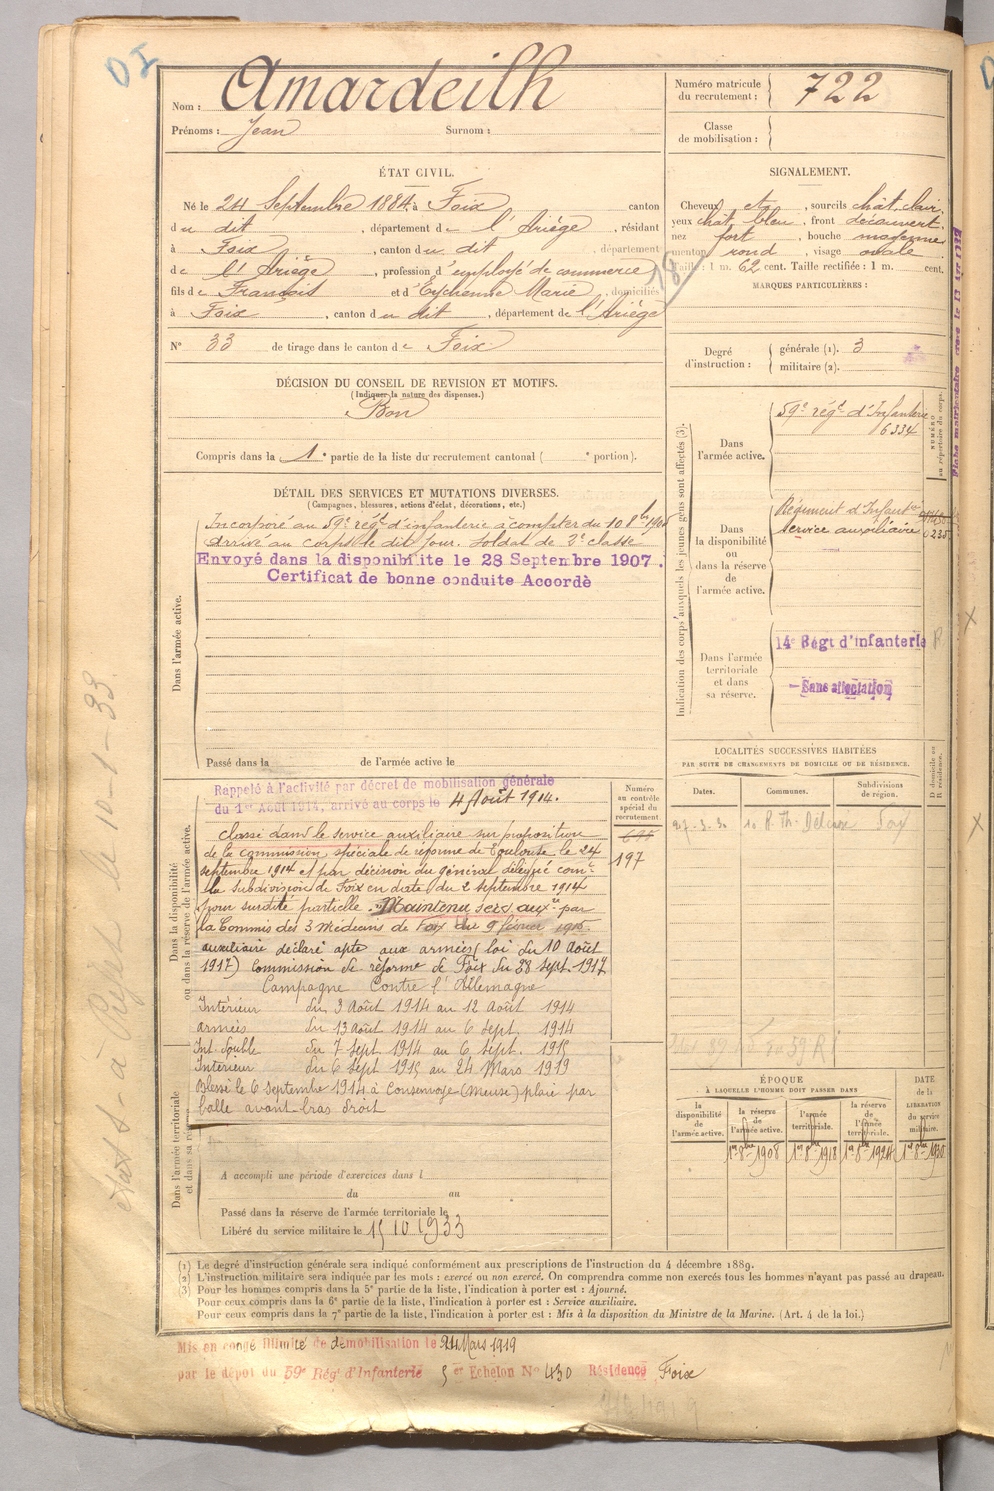 Nom : Amardeilh
Prénoms : Jean Surnom :
Numéro matricule du recrutement : 722
Classe de mobilisation :
ÉTAT CIVIL.
Né le 24 Septembre 1884, à Foix canton
du dit, département de l'Ariège, résidant
à Foix, canton du dit département
de l'Ariège, profession d'employé de commerce
fils de François et d'Eychenne Marie, domiciliés
à Foix, canton du dit, département de l'Ariège
N° 33 de tirage dans le canton de Foix
SIGNALEMENT.
Cheveux et, sourcils chât. clair,
yeux chât. bleu, front découvert,
nez fort, bouche moyenne
menton rond, visage ovale
Taille : 1 m. 62 cent. Taille rectifiée : 1 m. cent.
18
MARQUES PARTICULIÈRES :
Degré d'instruction : générale (1). 3
militaire (2).
DÉCISION DU CONSEIL DE REVISION ET MOTIFS.
(Indiquer la nature des dispenses.)
Bon
Compris dans la 1e partie de la liste du recrutement cantonal ( e portion).
DÉTAIL DES SERVICES ET MUTATIONS DIVERSES.
(Campagnes, blessures, actions d'éclat, décorations, etc.)
Dans l'armée active.
Incorporé au 59e régt d'infanterie à compter du 10 8bre
Arrivé au corps le dit jour. Soldat de 2e classe
Envoyé dans la disponibilite le 28 Septembre 1907.
Certificat de bonne conduite Accordè
Passé dans la de l'armée active le
Indication des corps auxquels les jeunes gens sont affectés (3).
NUMÉRO au répertoire du corps.
Dans l'armée active.
59e régt d'Infanterie
6334
Dans la disponibilité ou dans la réserve de l'armée active.
Régiment d'Infant
service auxiliaire
Dans l'armée territoriale et dans sa réserve.
14e Régt d'infanterie
Sans affectation
LOCALITÉS SUCCESSIVES HABITÉES
PAR SUITE DE CHANGEMENTS DE DOMICILE OU DE RÉSIDENCE.
D domicile ou R résidence.
Dates. Communes. Subdivision de région.
Foix
Dans la disponibilité ou dans la réserve de l'armée active.
Numéro au contrôle spécial du recrutement
197
Rappelé à l'activité par décret de mobilisation générale
du 1er Août 1914, arrivé au corps le 4 Août 1914.
Classé dans le service auxiliaire sur proposition
de la commission spéciale de réforme de Toulouse le 24
septembre 1914 et par décision du général délégué comt
la subdivision de Foix en date du 2 septembre 1914
pour surdité partielle. Maintenu serv aux. par
la Commis des 3 Médecins de Foix du 9 février 1915.
auxiliaire déclaré apte aux armées (loi du 10 Août
1917) Commission de réforme de Foix du 28 Sept. 1917
Campagne Contre l'Allemagne
Intérieur du 3 Août 1914 au 12 Août 1914
armées du 13 Août 1914 au 6 sept. 1914
Int. double du 7 sept 1914 au 6 sept. 1915
Intérieur du 6 sept 1915 au 24 Mars 1919
Blessé le 6 septembre 1914 à Consenvoye (Meuse) plaie par
balle avant bras droit
Dans l'armée territoriale et dans sa réserve
A accompli une période d'exercices dans l
du au
Passé dans la réserve de l'armée territoriale le
Libéré du service militaire le 15 10 1933
ÉPOQUE
À LAQUELLE L'HOMME DOIT PASSER DANS
DATE de la LIBÉRATION du service militaire.
la disponibilité de l'armée active.
la réserve de l'armée active.
l'armée territoriale.
la réserve de l'armée territoriale.
1er 8bre 1908 1er 8bre 1918 1er 8bre 1924 1er 8bre 1930
(1) Le degré d'instruction générale sera indiqué conformément aux prescriptions de l'instruction du 4 décembre 1889.
(2) L'instruction militaire sera indiquée par les mots : exercé ou non exercé. On comprendra comme non exercés tous les hommes n'ayant pas passé au drapeau.
(3) Pour les hommes compris dans la 5e partie de la liste, l'indication à porter est : Ajourné.
Pour ceux compris dans la 6e partie de la liste, l'indication à porter est : Service auxiliaire.
Pour ceux compris dans la 7e partie de la liste, l'indication à porter est : Mis à la disposition du Ministre de la Marine. (Art. 4 de la loi.)
Mis en congé illimité de démobilisation le 24 Mars 1919
par le dépôt du 59e Régt d'Infanterie 5 e Echelon N° 430 Résidence Foix